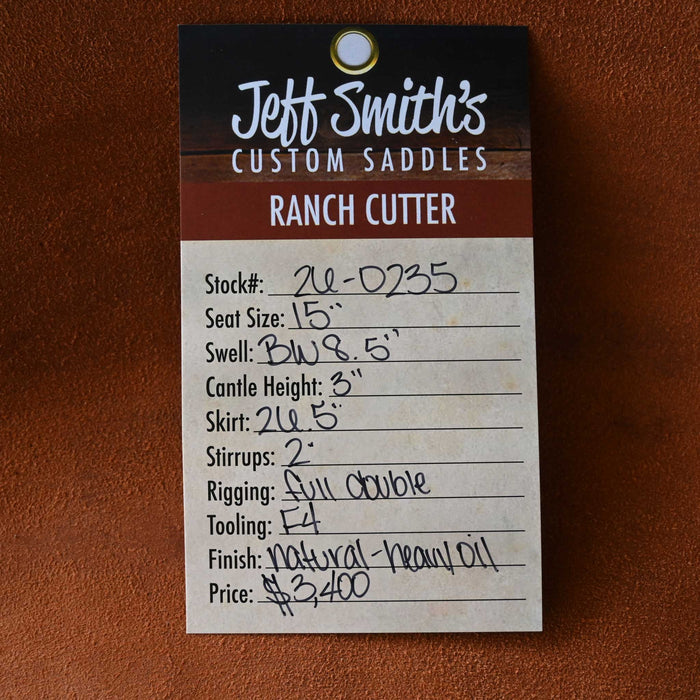 Jeff Smith's
CUSTOM SADDLES
RANCH CUTTER
Stock#: 26-0235
Seat Size: 15"
Swell: BW 8.5"
Cantle Height: 3"
Skirt: 26.5"
Stirrups: 2"
Rigging: full double
Tooling: F4
Finish: natural-heavy oil
Price: $3,400